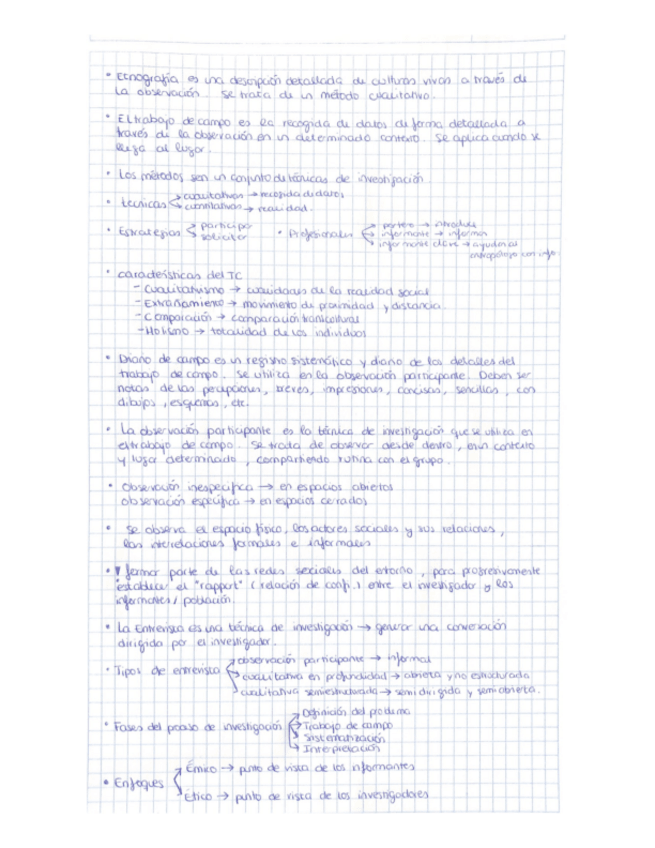 • Etnografía es una descripción detallada de culturas vivas a través de
la observación. Se trata de un método cualitativo.
• El trabajo de campo es la recogida de datos de forma detallada a
través de la observación en un determinado contexto. Se aplica cuando se
llega al lugar.
• Los métodos son un conjunto de técnicas de investigación.
• Técnicas cualitativas → recogida de datos
cuantitativas → realidad.
• Estrategias participar
solicitar
• Profesionales portero → introduce
informante → informar
informante clave → ayudan al
antropólogo con info.
• características del TC
- Cualitativismo → cualidades de la realidad social
- Extrañamiento → movimiento de proximidad y distancia
- Comparación → comparación transcultural
- Holismo → totalidad de los individuos
• Diario de campo es un registro sistemático y diario de los detalles del
trabajo de campo. Se utiliza en la observación participante. Deben ser
notas de las percepciones, breves, impresiones, concisas, sencillas, con
dibujos, esquemas, etc.
• La observación participante es la técnica de investigación que se utiliza en
el trabajo de campo. Se trata de observar desde dentro, en un contexto
y lugar determinado, compartiendo rutina con el grupo.
• Observación inespecífica → en espacios abiertos
observación específica → en espacios cerrados
• Se observa el espacio físico, los actores sociales y sus relaciones,
las interelaciones formales e informales
• formar parte de las redes sociales del entorno, para progresivamente
establecer el "rapport" (relación de conf.) entre el investigador y los
informantes / población.
• La Entrevista es una técnica de investigación → generar una conversación
dirigida por el investigador.
• Tipos de entrevista observación participante → informal
cualitativa en profundidad → abierta y no estructurada
cualitativa semiestructurada → semidirigida y semiabierta.
• Fases del proceso de investigación Definición del problema
Trabajo de campo
Sistematización
Interpretación
• Enfoques Émico → punto de vista de los informantes
Ético → punto de vista de los investigadores